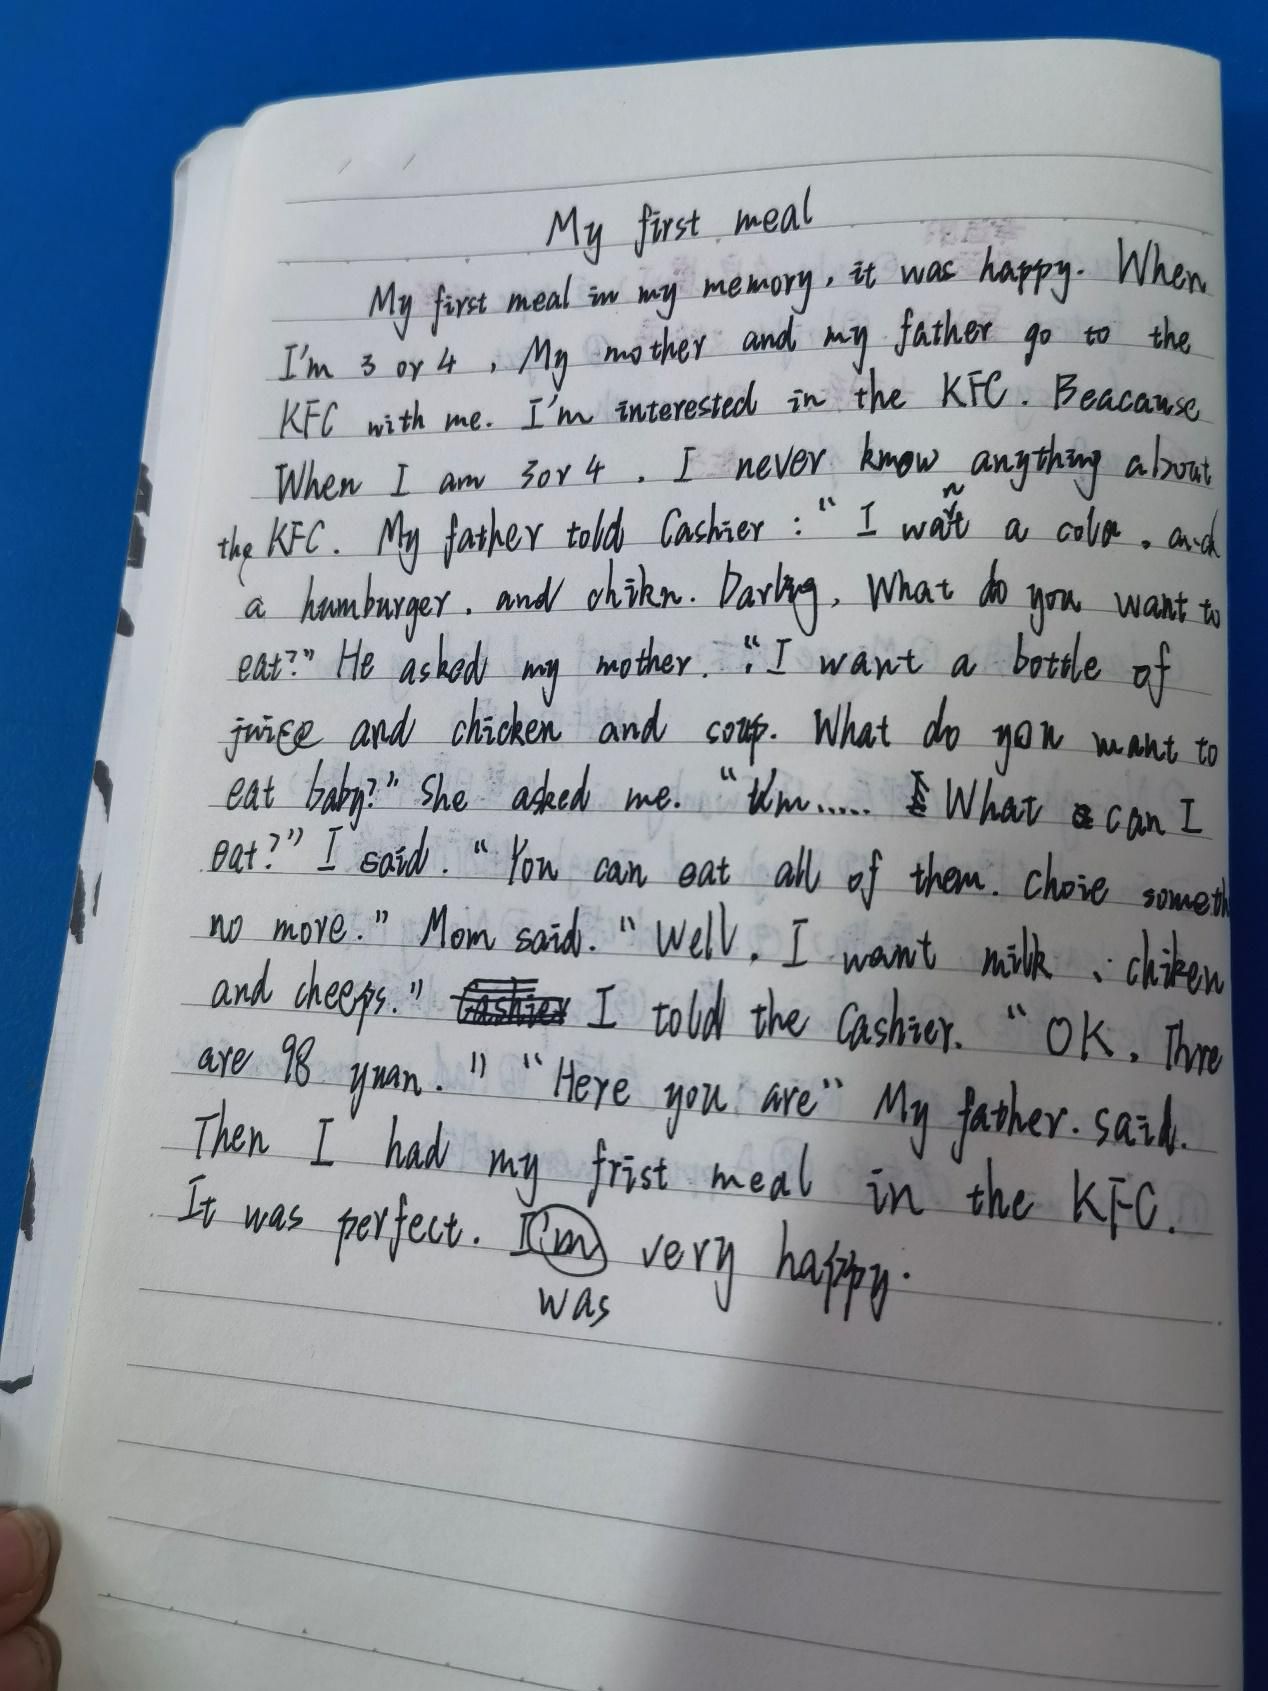 My first meal
My first meal in my memory, it was happy. When
I'm 3 or 4, My mother and my father go to the
KFC with me. I'm interested in the KFC. Beacause
When I am 3 or 4. I never know anything about
the KFC. My father told Cashier: "I want a cola, and
a humburger, and chikn. Darling, What do you want to
eat?" He asked my mother. "I want a bottle of
juice and chicken and soup. What do you want to
eat baby?" She asked me. "Um..... What can I
eat?" I said. "You can eat all of them. Choie someth
no more." Mom said. "Well, I want milk、chiken
and cheeps." Cashier I told the Cashier. "OK, Thre
are 98 yuan." "Here you are" My father. said.
Then I had my frist meal in the KFC.
It was perfect. I'm very happy.
was